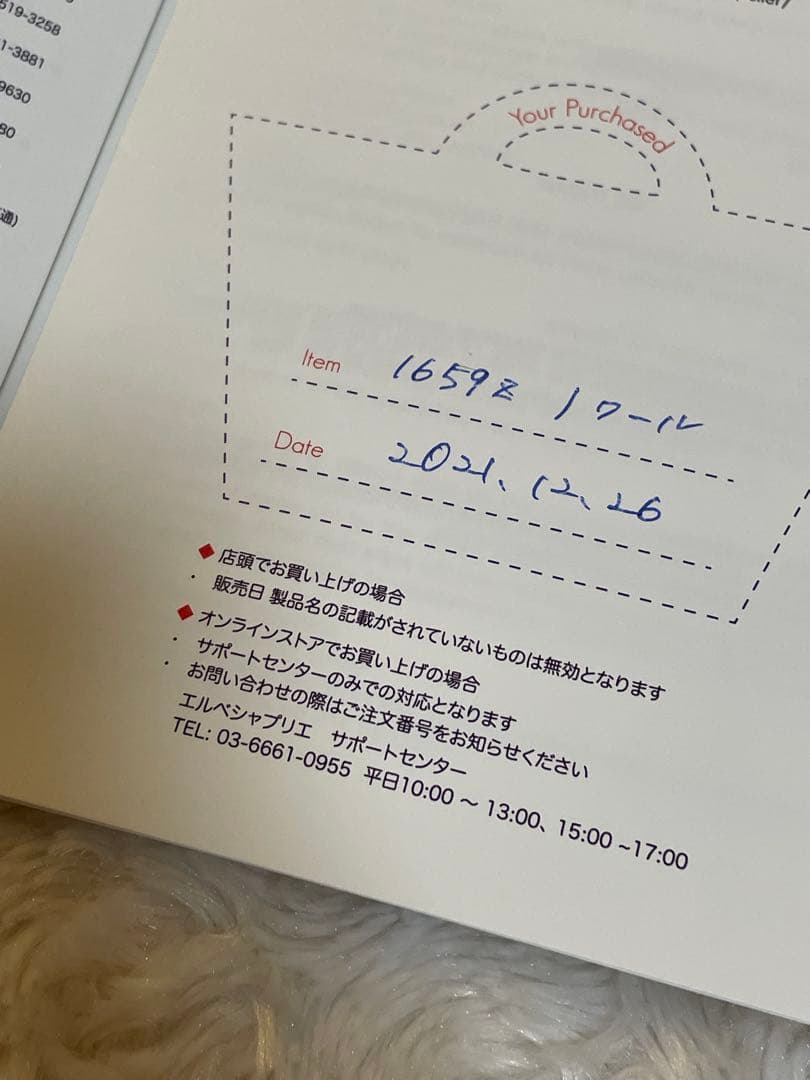 519-3258
1-3881
9630
80
通)
Your Purchased
Item 1659Z ノワール
Date 2021、12、26
◆ 店頭でお買い上げの場合
・ 販売日 製品名の記載がされていないものは無効となります
◆ オンラインストアでお買い上げの場合
・ サポートセンターのみでの対応となります
・ お問い合わせの際はご注文番号をお知らせください
エルベシャプリエ サポートセンター
TEL: 03-6661-0955 平日10:00 ～ 13:00、15:00 ~17:00